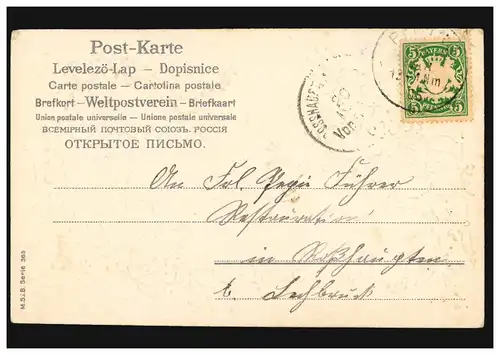 Post-Karte
Levelezö-Lap — Dopisnice
Carte postale — Cartolina postale
Brefkort — Weltpostverein — Briefkaart
Union postale universelle — Unione postale universale
ВСЕМІРНЫЙ ПОЧТОВЫЙ СОЮЗЪ. РОССІЯ
ОТКРЫТОЕ ПИСЬМО.
BAYERN
5 5
5 5
PFENNIG
Vor
An Frl. Führer
Restauration
in Roßhaupten
b. Lechbruck
M.S.i.B. Serie 365